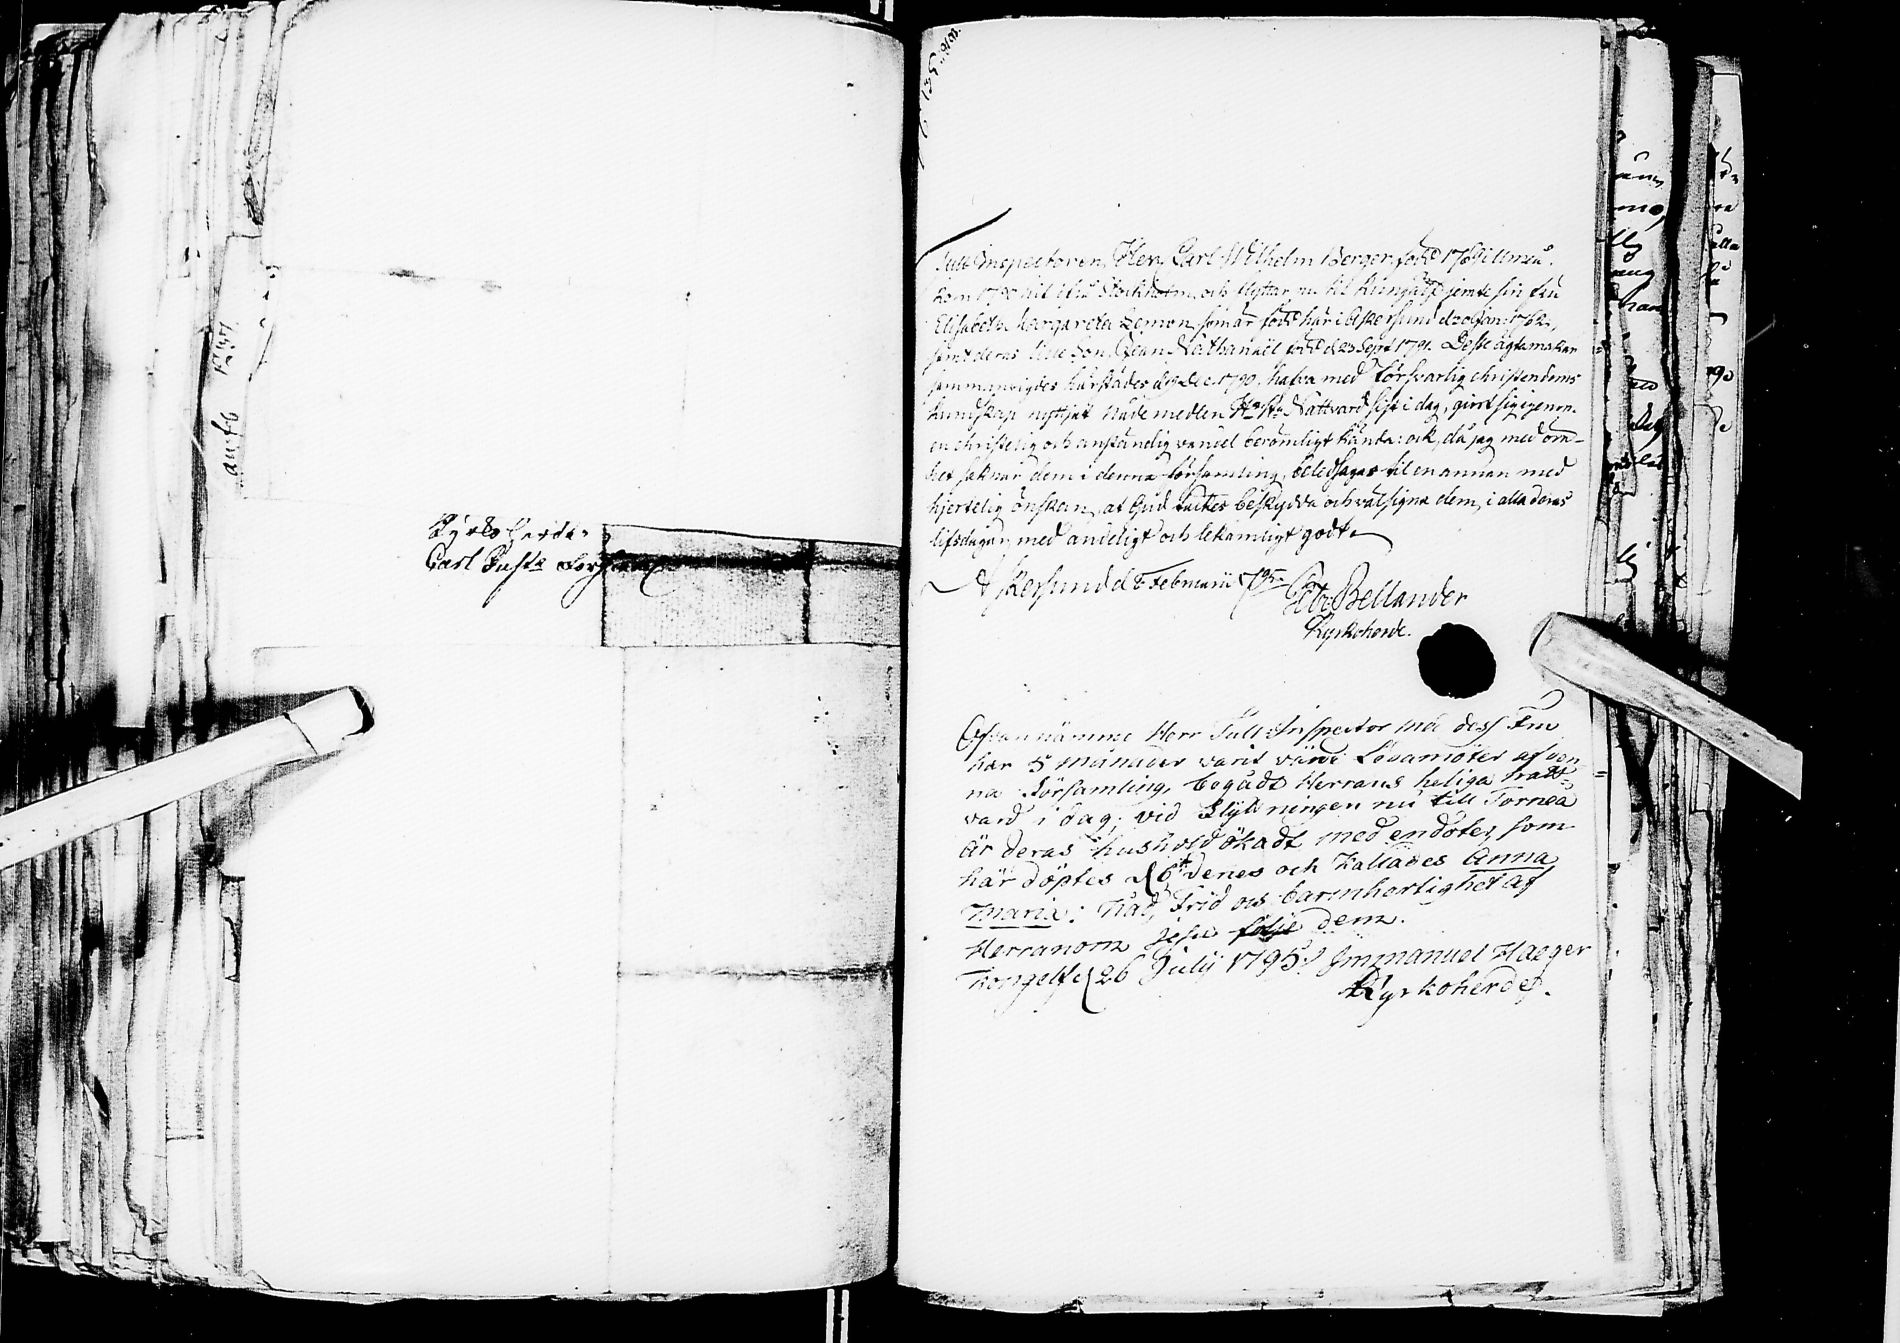 Kyrko Herde.
Carl Gust:
Tull-Inspectoren, Herr Carl Wilhelm Berger, född 17 i Umeå.
kom 1790 hit ifrå Stockholm, och flyttar nu til Kungälf jemte sin Fru
Elisabeth Margareta Lemon, som är född här i Askersund d 20 Jan: 1762,
samt deras lille Son, Jean Nathanaël född d 23 Sept 1791. Desse ägta makar
sammanvigdes härstädes d 19 Dec. 1790. hafva med försvarlig christendoms
kundskap nyttjat Nåde medlen Hrns Ha Nattvard sist i dag, giort sig igenom
en christelig och anständig vandel berömligt kända: ock, då jag med öm-
het saknar dem i denna församling, beledsagas til en annan med
hjertelig önskan, at Gud täckes beskydda och välsigna dem, i alla deras
lifsdagar, med andeligt och lekamligt godt.
Askersund d 8 Februarii 1795. Bellander
Kyrkoherde.
Ofvannämnde Herr Tull-Inspector med dess Fru
har 5 månader varit värde Ledamöter af den-
na Församling, begådt Herrans heliga Natt-
vard i dag; vid Flyttningen nu till Torneå
är deras hushold ökadt med en dotter, som
här döptes d 6 denes och kallades Anna
Maria: Nåd, Frid och barmhertighet af
Herranom Jesu följe dem.
Kongelf d 26 Julij 1795. Immanuel Haeger
Kyrkoherde.